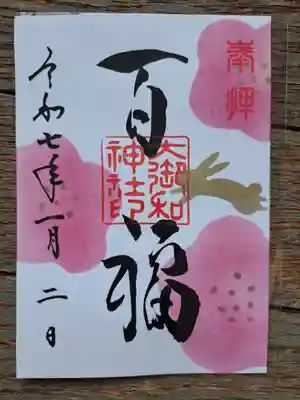 奉拝
百福
大御和
神社
之印
令和七年一月二日